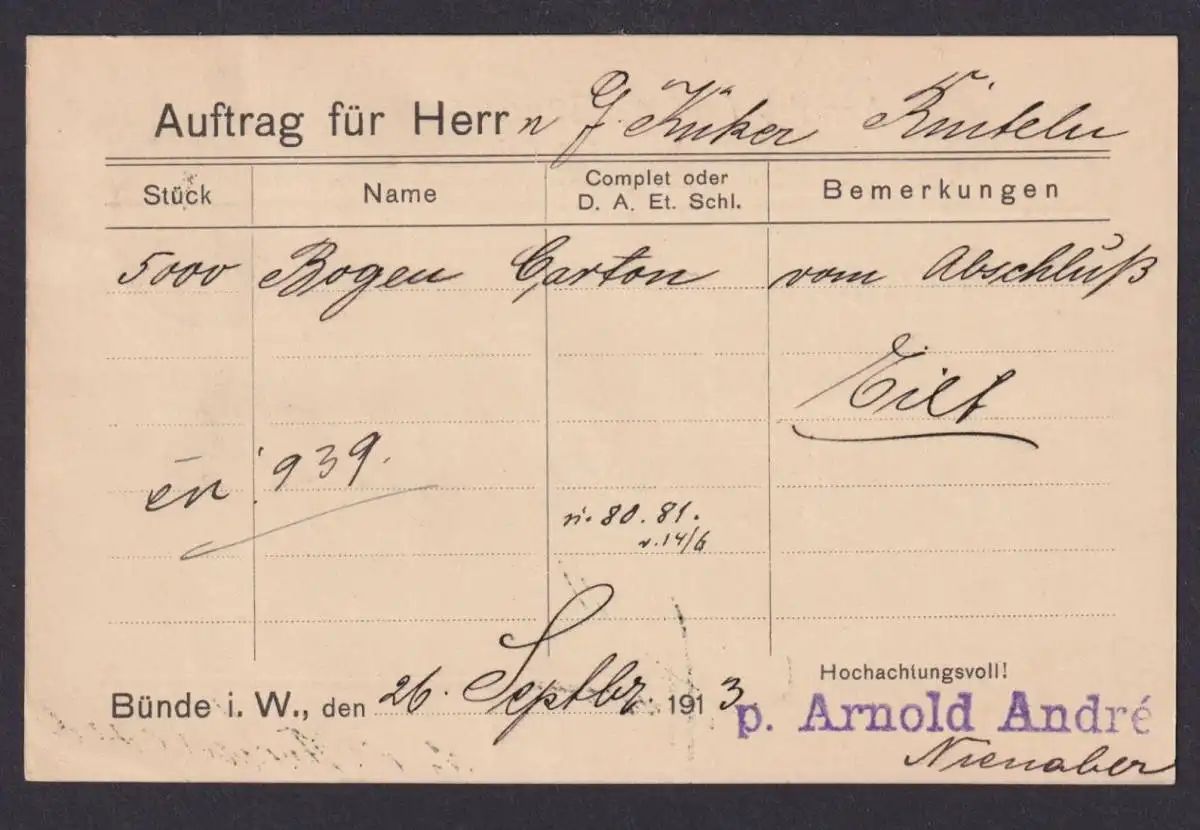 Auftrag für Herrn J. Küker Rinteln
Stück Name Complet oder D. A. Et. Schl. Bemerkungen
5000 Bogen Carton vom Abschluß
Eilt
939.
80. 81.
v. 14/6
Hochachtungsvoll!
Bünde i. W., den 26. Septbr. 1913
p. Arnold André
Nienaber